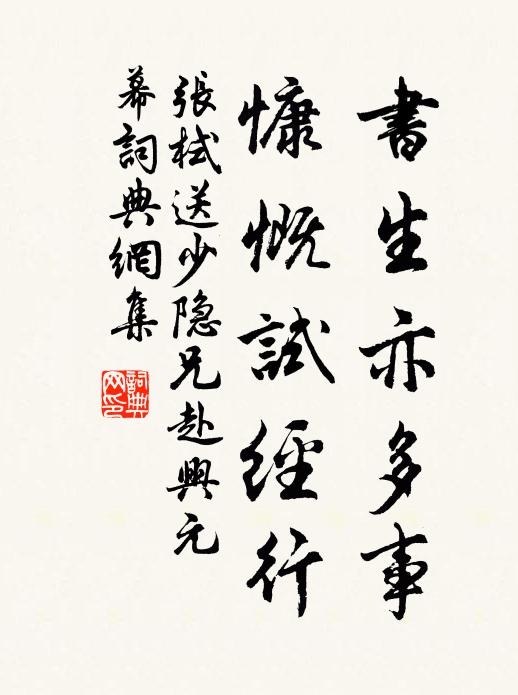 書生亦多事
慷慨試經行
張栻送少隐兄赴興元
幕詞典網集
詞典网印